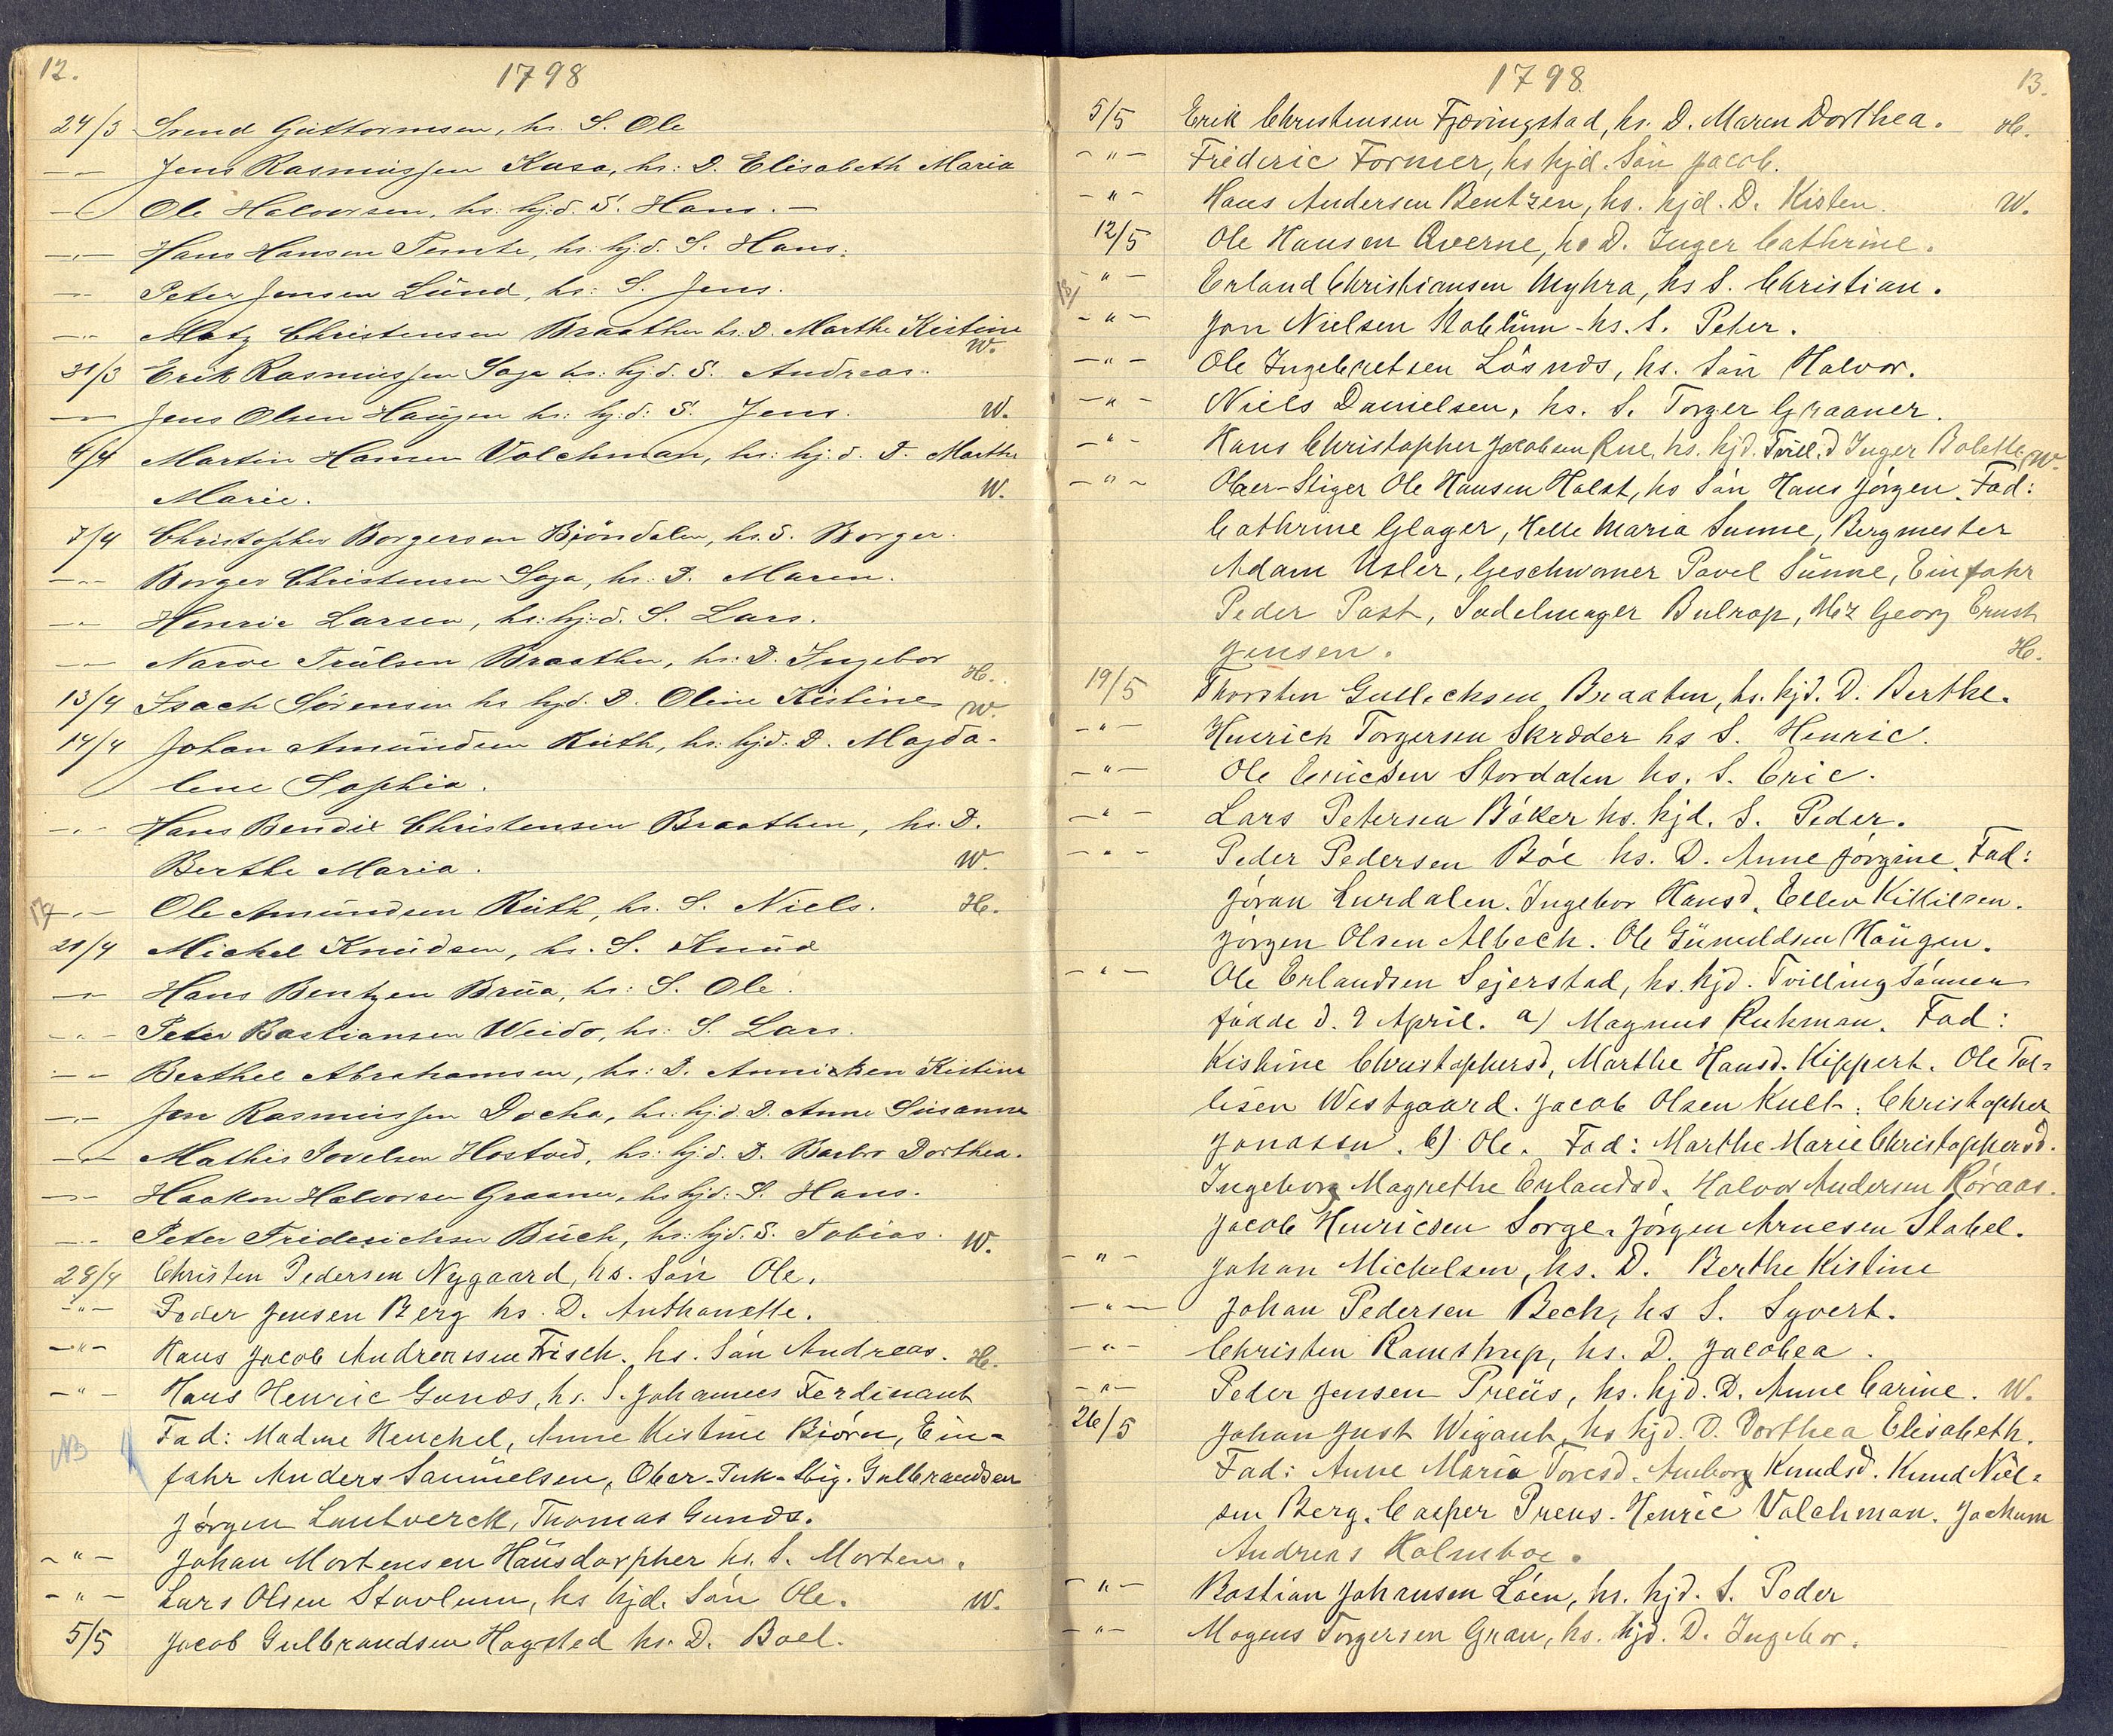 12.
1798
24/3 Svend Guttormsen, hs. S. Ole
—„— Jens Rasmussen Kasa, hs: D. Elisabeth Maria
—„— Ole Halvorsen, hs: hj:d. S. Hans. —
—„— Hans Hansen Temte, hs: hj:d. S. Hans.
—„— Peter Jensen Lünd, hs: S. Jens.
—„— Matz Christensen Braathen hs. D. Marthe Kistine W.
31/3 Erik Rasmussen Saga hs: hj:d. S. Andreas.
—„— Jens Olsen Haügen hs: hj:d: S. Jens. W.
4/4 Martin Hansen Volchman, hs: hj:d. D. Marthe
Marie. W.
7/4 Christopher Borgersen Bjöndalen, hs. S. Borger.
—„— Borger Christensen Saga, hs: D. Maren.
—„— Henric Larsen, hs: hj:d. S. Lars.
—„— Narve Trülsen Braathen, hs: D. Ingebor H.
13/4 Isach Sörensen hs hjd. D. Oline Kistine W.
14/4 Johan Amündsen Rüth, hs: hjd: D. Magda-
lene Sophia.
—„— Hans Bendix Christensen Braathen, hs. D.
Berthe Maria. W.
—„— Ole Amündsen Rüth, hs. S. Niels. H.
21/4 Michel Knüdsen, hs. S. Knüd
—„— Hans Bentzen Brüa, hs: S. Ole.
—„— Peter Bastiansen Weido, hs: S. Lars.
—„— Berthel Abrahamsen, hs: D. Annicken Kistine
—„— Jon Rasmussen Docka, hs: hj:d. D. Anne Süsanna
—„— Mathis Jovelsen Hostvid, hs: hj:d. D. Barbro Dorthea.
—„— Haakon Halvorsen Graaner, hs hjd: S. Hans.
—„— Peter Friderichsen Büch, hs: hjd. S. Tobias. W.
28/4 Christen Pedersen Nygaard, hs. Sön Ole.
-„- Peder Jensen Berg hs. D. Anthonette.
-„- Hans Jacob Andreassen Frisch. hs. Sön Andreas. H.
-„- Hans Henric Gunds, hs. S. Johannes Ferdinant
NB Fad: Madme Henchel, Anne Kistine Biörn, Ein-
fahr Anders Samüelsen, Ober-Puk-Stig. Gulbrandsen
Jörgen Lantverck, Thomas Gunds.
-„- Johan Mortensen Haüsdorpher hs. S. Morten.
-„- Lars Olsen Stavlum, hs hjd. Sön Ole. W.
5/5 Jacob Gulbrandsen Hagsted hs. D. Boel.
1798.
13.
5/5 Erik Christensen Fjeringstad, hs. D. Maren Dorthea. H.
-„- Frideric Former, hs hjd. Sön Jacob.
-„- Hans Andersen Bentzen, hs. hjd. D. Kisten. W.
12/5 Ole Hansen Qverne, hs D. Inger Cathrine.
-„- Erland Christiansen Myhra, hs S. Christian.
-„- Jon Nielsen Stablüm - hs. S. Peter.
-„- Ole Ingebretsen Lösnæs, hs. Sön Halvor.
-„- Niels Danielsen, hs. S. Torger Graaner.
-„- Hans Christopher Jacobsen Rue, hs. hjd. Tvill. D Inger Bolette W.
-„- Ober-Stiger Ole Hansen Holst, hs Sön Hans Jörgen. Fad:
Cathrine Glager, Helle Maria Sunne, Bergmester
Adam Usler, Geschworner Pavel Sünne, Einfahr
Peder Post, Sadelmager Bulrop, Mr Georg Ernst
Jensen. H.
19/5 Thorsten Gullechsen Braaten, hs. hjd. D. Berthe.
-„- Henrich Torgersen Skrædder hs S. Henric.
-„- Ole Ericsen Stordalen hs. S. Eric.
-„- Lars Petersen Böker hs. hjd. S. Peder.
-„- Peder Pedersen Böe hs. D. Anne Jörgine. Fad:
Jöran Lurdalen. Ingebor Hansd. Ellev Kittilsen.
Jörgen Olsen Albech. Ole Günuldsen Haügen.
-„- Ole Erlandsen Sejerstad, hs. hjd. Tvilling Sönner
födde d. 9 April. a) Magnus Ruhman. Fad:
Kistine Christophersd, Marthe Hansd. Kippert. Ole Tol-
lisen Westgaard. Jacob Olsen Kult. Christopher
Jonassn. b) Ole. Fad: Marthe Marie Christophersd.
Ingeborg Magrethe Erlandsd. Halvor Andersen Röraas.
Jacob Henricsen Sorge. Jörgen Arnesen Stabel.
-„- Johan Michelsen, hs. D. Berthe Kistine
-„- Johan Pedersen Bech, hs S. Syvert.
-„- Christen Ramstrup, hs. D. Jacobea.
-„- Peder Jensen Preüs, hs. hjd. D. Anne Carine. W.
26/5 Johan Just Wigant, hs hjd. D. Dorthea Elisabeth.
Fad: Anne Maria Toresd. Amborg Knudsd. Knud Niel-
sen Berg. Casper Preus. Henric Volchman. Jochum
Andreas Holmboe.
-„- Bastian Johansen Löen, hs. hjd. S. Peder
-„- Mogens Torgersen Gran, hs. hjd. D. Ingebor.